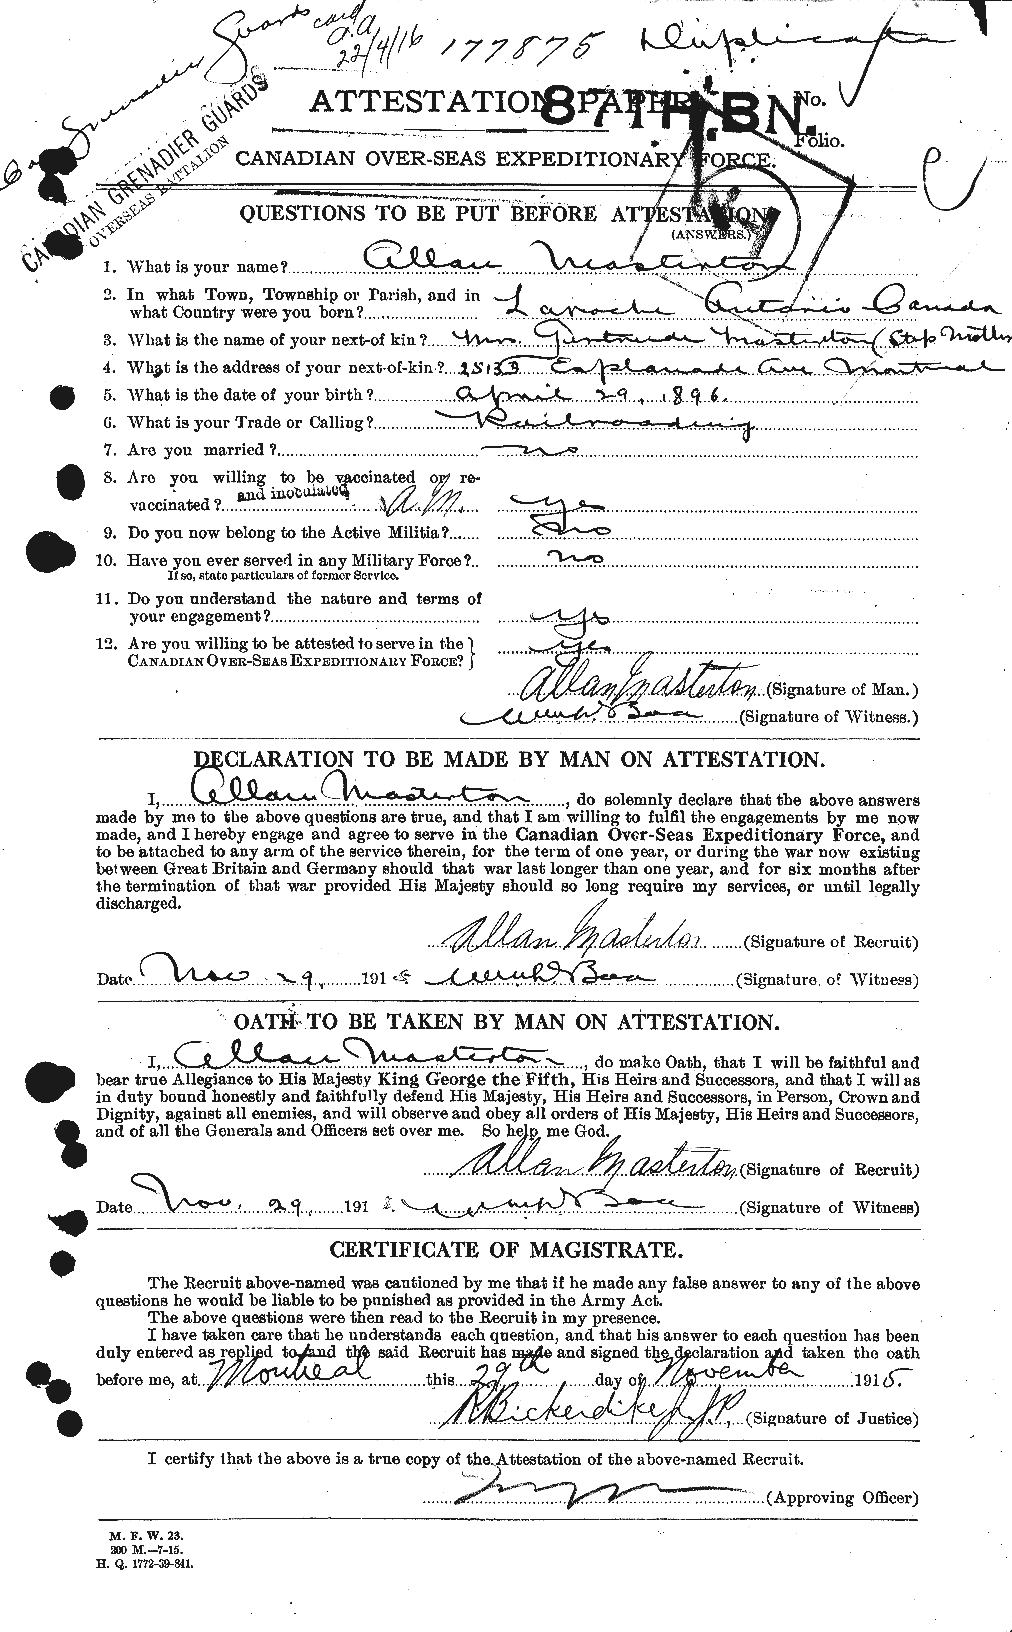 Guards card
J.A.
22/4/16
177875 Duplicate
Can Grenadier
CANADIAN GRENADIER GUARDS
OVERSEAS BATTALION
ATTESTATION PAPER. No.
87TH. BN.
Folio.
CANADIAN OVER-SEAS EXPEDITIONARY FORCE.
QUESTIONS TO BE PUT BEFORE ATTESTATION.
(ANSWERS.)
1. What is your name? Allan Masterton
2. In what Town, Township or Parish, and in
what Country were you born? Laroche Ontario Canada
3. What is the name of your next-of kin? Mrs. Gertrude Masterton (Step Mother
4. What is the address of your next-of-kin? 2513B Esplanade Ave Montreal
5. What is the date of your birth? April 29, 1896.
6. What is your Trade or Calling? Railroading
7. Are you married? no
8. Are you willing to be vaccinated or re-
vaccinated? and inoculated A.M. yes
9. Do you now belong to the Active Militia? no
10. Have you ever served in any Military Force? no
If so, state particulars of former Service.
11. Do you understand the nature and terms of
your engagement? Yes
12. Are you willing to be attested to serve in the
CANADIAN OVER-SEAS EXPEDITIONARY FORCE? } yes
Allan Masterton (Signature of Man.)
(Signature of Witness.)
DECLARATION TO BE MADE BY MAN ON ATTESTATION.
I, Allan Masterton, do solemnly declare that the above answers
made by me to the above questions are true, and that I am willing to fulfil the engagements by me now
made, and I hereby engage and agree to serve in the Canadian Over-Seas Expeditionary Force, and
to be attached to any arm of the service therein, for the term of one year, or during the war now existing
between Great Britain and Germany should that war last longer than one year, and for six months after
the termination of that war provided His Majesty should so long require my services, or until legally
discharged.
Allan Masterton (Signature of Recruit)
Date Nov 29, 1915 (Signature of Witness)
OATH TO BE TAKEN BY MAN ON ATTESTATION.
I, Allan Masterton, do make Oath, that I will be faithful and
bear true Allegiance to His Majesty King George the Fifth, His Heirs and Successors, and that I will as
in duty bound honestly and faithfully defend His Majesty, His Heirs and Successors, in Person, Crown and
Dignity, against all enemies, and will observe and obey all orders of His Majesty, His Heirs and Successors,
and of all the Generals and Officers set over me. So help me God.
Allan Masterton (Signature of Recruit)
Date Nov. 29, 191 (Signature of Witness)
CERTIFICATE OF MAGISTRATE.
The Recruit above-named was cautioned by me that if he made any false answer to any of the above
questions he would be liable to be punished as provided in the Army Act.
The above questions were then read to the Recruit in my presence.
I have taken care that he understands each question, and that his answer to each question has been
duly entered as replied to, and the said Recruit has made and signed the declaration and taken the oath
before me, at Montreal this 29th day of November 1915.
R Bickerdike J.P. (Signature of Justice)
I certify that the above is a true copy of the Attestation of the above-named Recruit.
(Approving Officer)
M. F. W. 23.
300 M.—7-15.
H. Q. 1772-39-841.